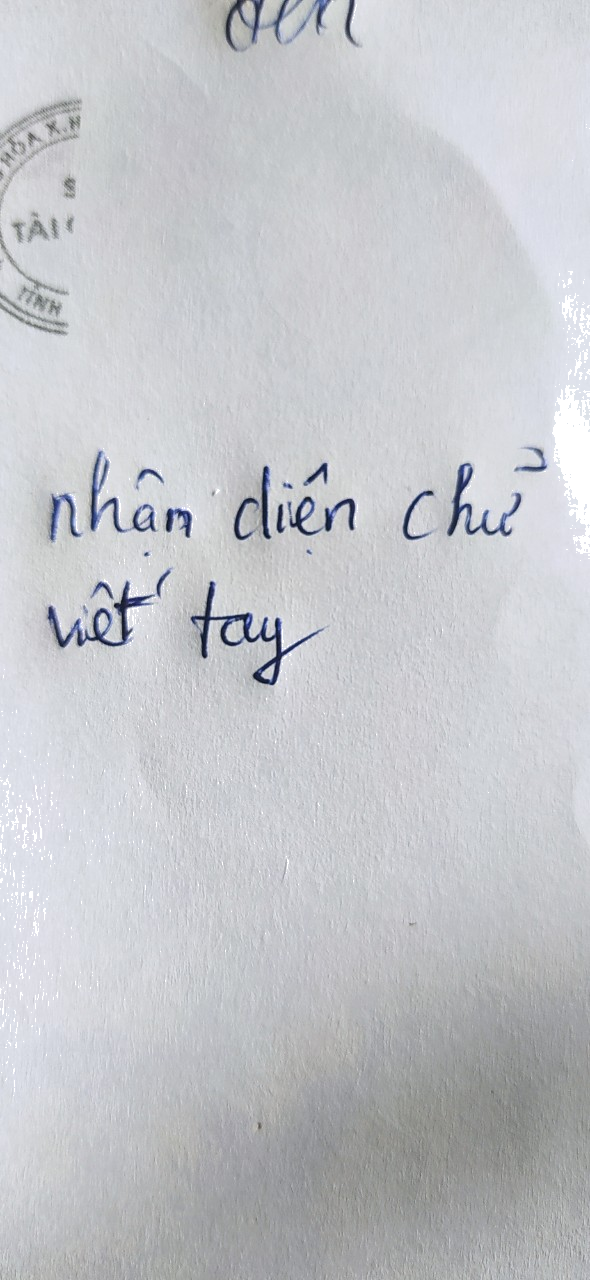 HÒA X.H
TÀI
TỈNH
nhận diện chử
viết tay